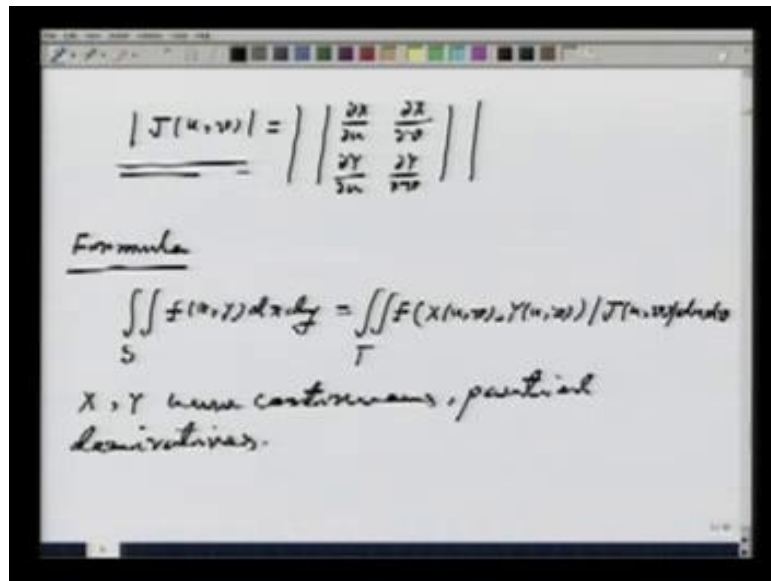 |J(u,v)| = | | ∂X/∂u ∂X/∂v |
| ∂Y/∂u ∂Y/∂v | |
Formula
∬ f(x,y) dx dy = ∬ f(X(u,v), Y(u,v)) |J(u,v)| du dv
S T
X, Y have continuous, partial
derivatives.